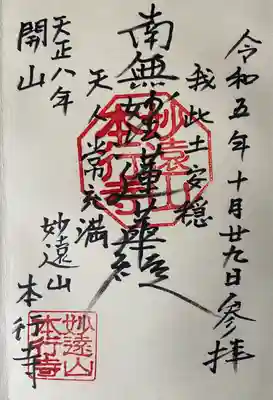 令和五年十月廿九日参拝
我此土安穏
南無妙法蓮華経
天人常充満
天正八年
開山
妙遠山
本行寺
妙遠山
本行寺
妙遠山
本行寺